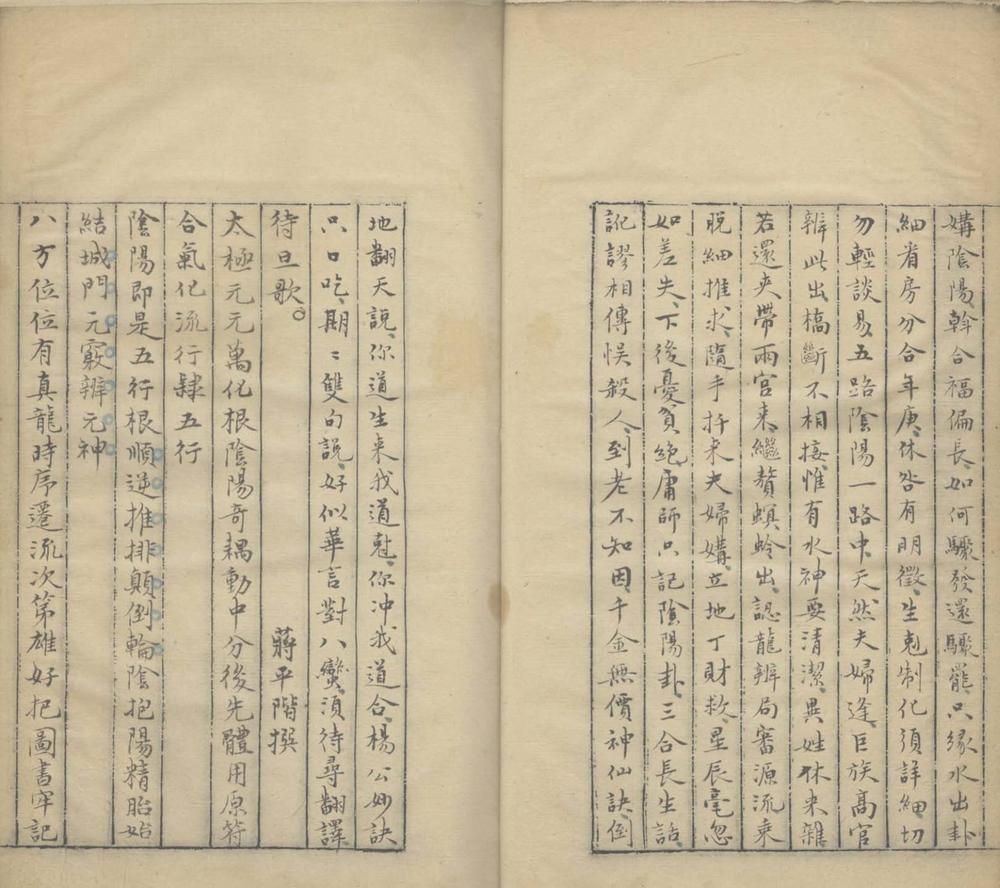 媾陰陽斡合福偏長、如何驟發還驟罷、只緣水出卦
細省房分合年庚、休咎有明徵、生剋制化須詳細、切
勿輕談易、五路陰陽一路中、天然夫婦逢、巨族高官
辨此出、槁斷不相接、惟有水神要清潔、異姓休來雜
若還夾帶兩宮來、繼贅螟蛉出、認龍辨局審源流、乘
脫細推求、隨手扦來夫婦媾、立地丁財救、星辰毫忽
如差失、下後憂貧絕、庸師只記陰陽卦、三合長生話、
訛謬相傳悮殺人、到老不知因、千金無價神仙訣、倒
地翻天說、你道生來我道尅、你冲我道合、楊公妙訣
只口吃、期〻雙句說、好似華言對八蠻、須待尋翻譯
待旦歌。 蔣平階撰
太極元元萬化根陰陽奇耦動中分後先體用原符
合氣化流行肆五行
陰陽即是五行根順逆推排顛倒輪陰抱陽精胎始
結城門元竅辨元神
八方位位有真龍時序遷流次第雄好把圖書牢記